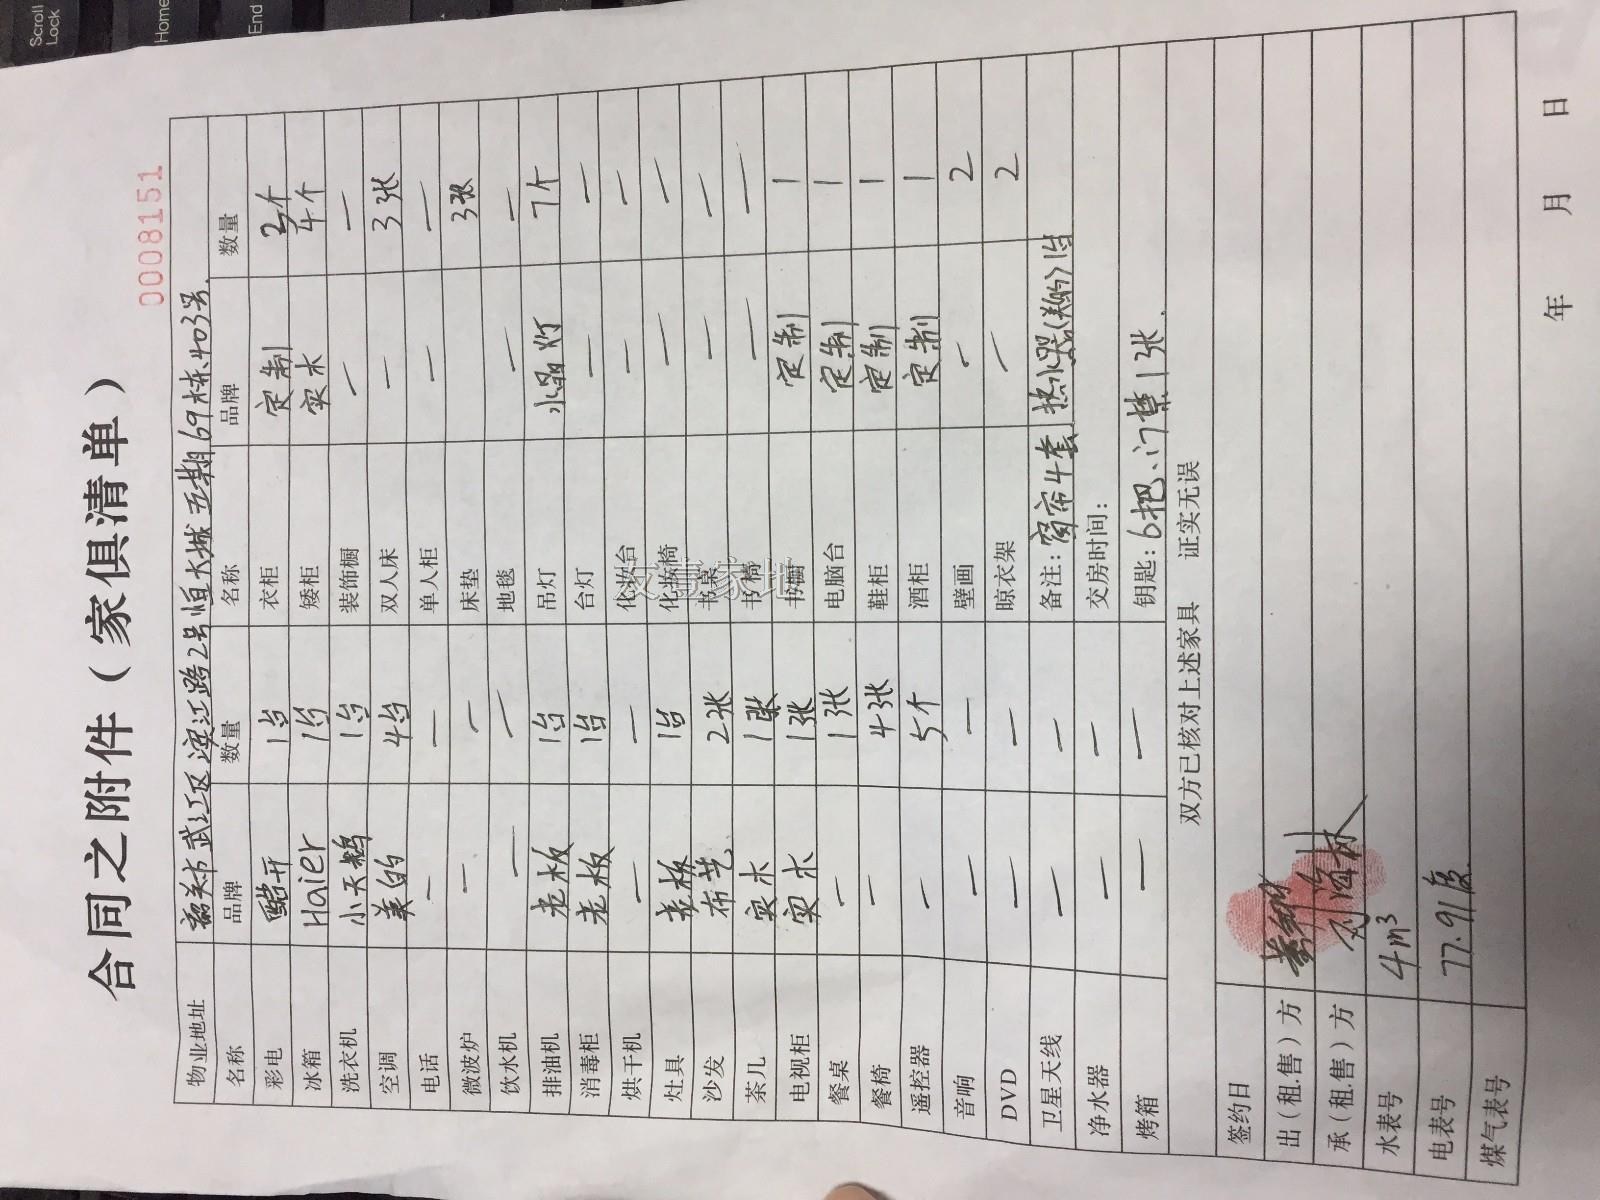 合同之附件（家俱清单）
0008151
物业地址 韶关市武江区滨江路2号恒大城五期69栋403号
名称 品牌 数量 名称 品牌 数量
彩电 酷开 1台 衣柜 定制 3个
冰箱 Haier 1台 矮柜 实木 4个
洗衣机 小天鹅 1台 装饰橱 — —
空调 美的 4台 双人床 — 3张
电话 — — 单人柜 — —
微波炉 — — 床垫 3张
饮水机 — — 地毯 — —
排油机 老板 1台 吊灯 水晶灯 7个
消毒柜 老板 1台 台灯 — —
烘干机 — — 化妆台 — —
灶具 老板 1台 化妆椅 — —
沙发 布艺 2张 书桌 — —
茶几 实木 1张 书椅 — —
电视柜 实木 1张 书橱 定制 1
餐桌 — 1张 电脑台 定制 1
餐椅 — 4张 鞋柜 定制 1
遥控器 — 5个 酒柜 定制 1
音响 — — 壁画 — 2
DVD — — 晾衣架 — 2
卫星天线 — — 备注：窗帘4套 热水器 1台
净水器 — — 交房时间：
烤箱 — — 钥匙：6把、门禁1张.
双方已核对上述家具 证实无误
签约日
出（租.售）方
承（租.售）方
水表号 4m³
电表号 77.91度
煤气表号
年 月 日